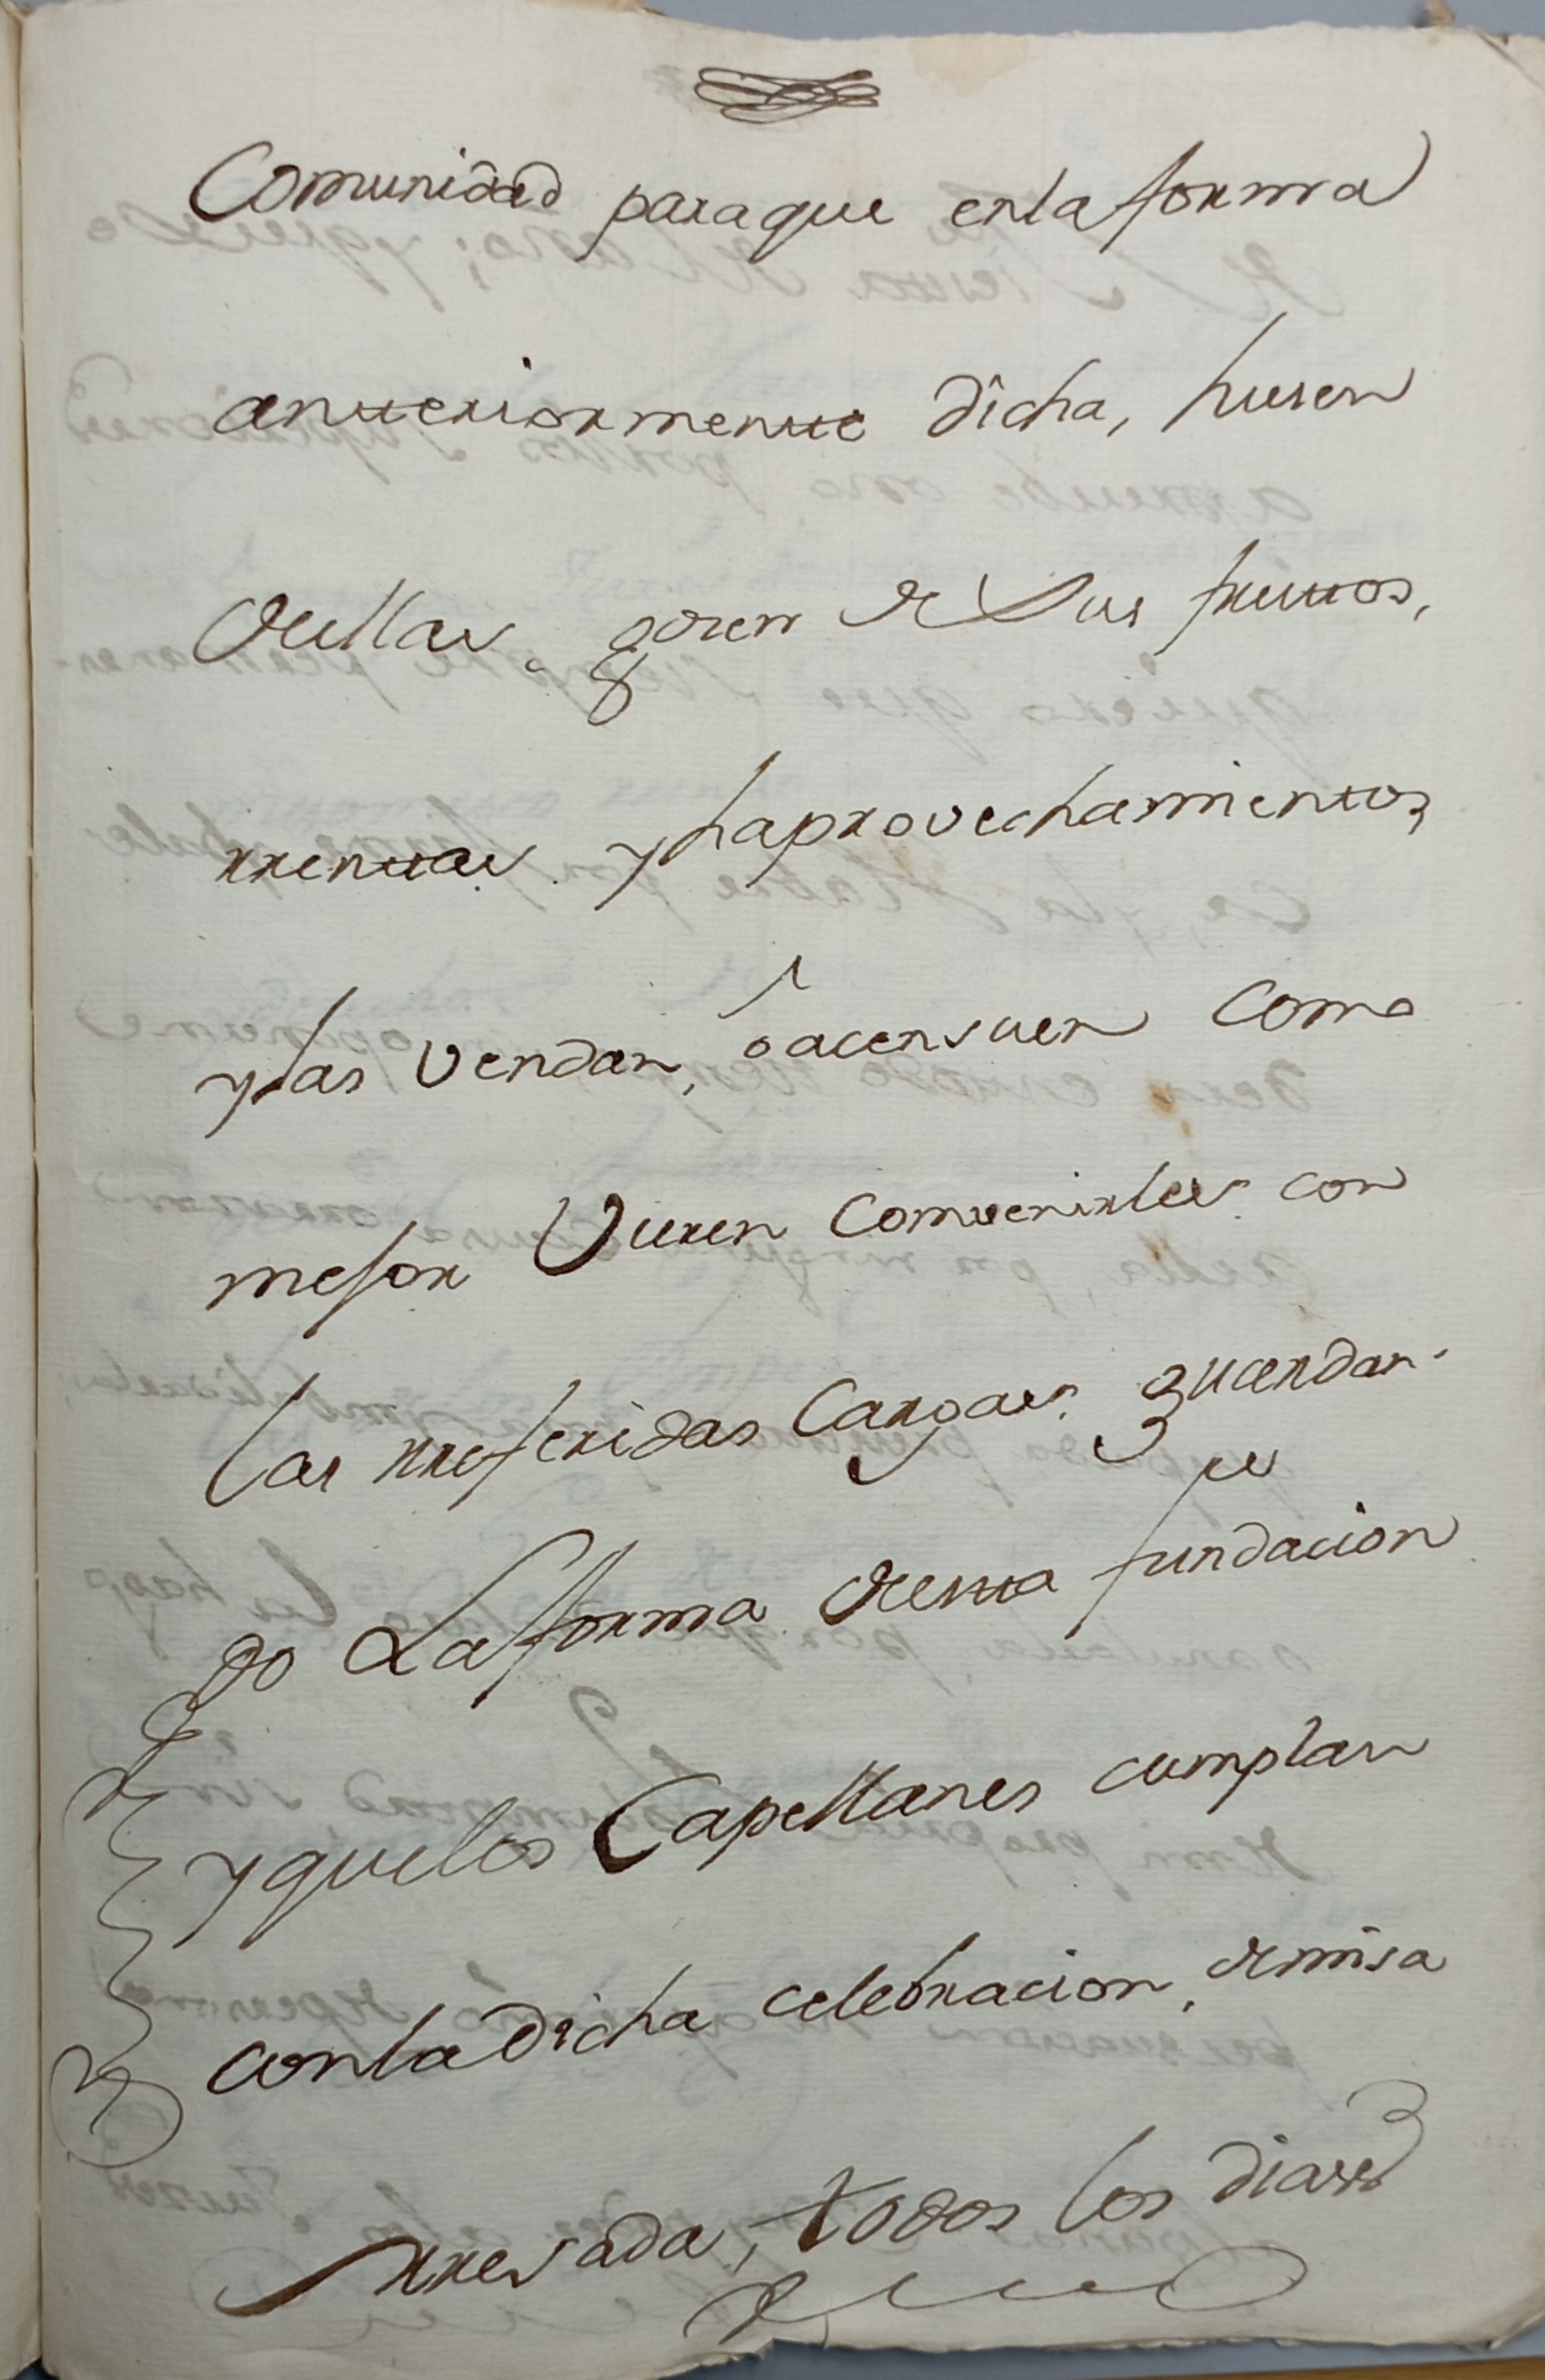 Comunidad paraque enla forma
anteriormente dicha, husen
dellas, gosen de Sus frutos,
rrentas yhaprovechamientos
ylas Vendan, ó acensuen como
mejor Vieren Combenirles con
las rreferidas Cargas, guardan-
do La forma desta fundacion
yquelos Capellanes cumplan
conladicha celebracion, demisa
rresada, todos los dias